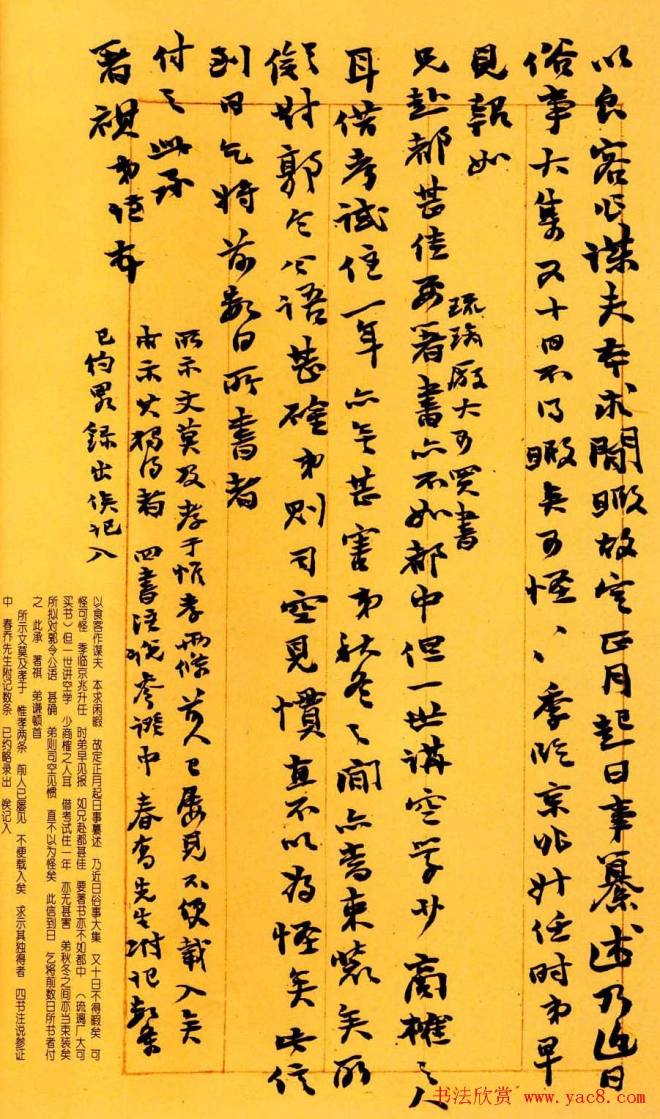 以食客作谋夫本求閒暇故定正月起日事纂述乃近日
俗事大集又十日不得暇矣可怪〻〻季临京兆升任时弟早
見報如
兄赴都甚佳要著書亦不如都中但一世講空学少商榷之人
琉璃厰大可買書
耳借考試住一年亦无甚害弟秋冬之间亦当束装矣所
拟对郭令公语甚確弟则司空見慣直不以为怪矣此信
到日乞将前数日所書者
付之此承
著祺弟谦顿首
所示文莫及孝于惟孝兩條前人已屡見不便載入矣
求示其獨得者四書注说参證中春喬先生附记数条
已约畧録出俟记入
以食客作谋夫 本求闲暇 故定正月起日事纂述 乃近日俗事大集 又十日不得暇矣 可
怪可怪 季临京兆升任 时弟早见报 如兄赴都甚佳 要著书亦不如都中 （琉璃厂大可
买书）但一世讲空学 少商榷之人耳 借考试住一年 亦无甚害 弟秋冬之间亦当束装矣
所拟对郭令公语 甚确 弟则司空见惯 直不以为怪矣 此信到日 乞将前数日所书者付
之 此承 著祺 弟谦顿首
所示文莫及孝于 惟孝两条 前人已屡见 不便载入矣 求示其独得者 四书注说参证
中 春乔先生附记数条 已约略录出 俟记入
书法欣赏 www.yac8.com